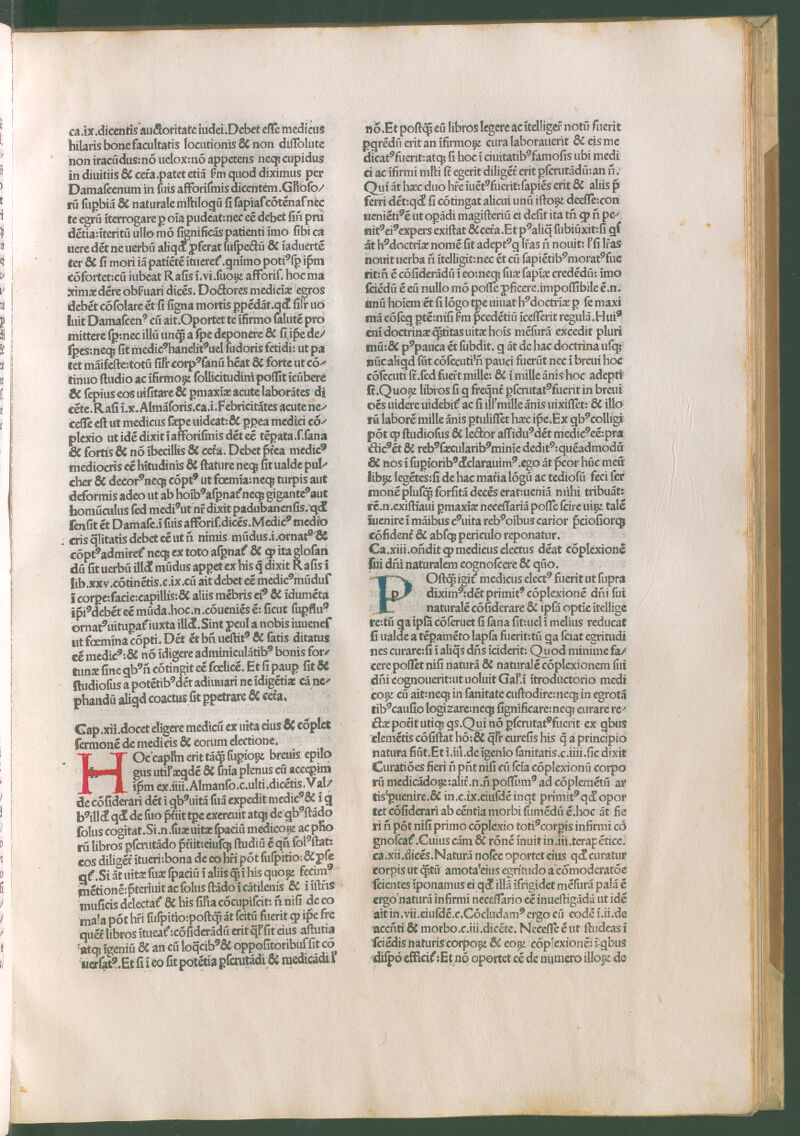 ca.ix.dicentis auctoritate iudei.Debet esse medicus
hilaris bone facultatis locutionis & non dissolute
non iracūdus:nō uelox:nō appetens neqꝫ cupidus
in diuitiis & ceťa.patet etiā ẜm quod diximus per
Damascenum in suis afforismis dicentem.
rū supbiā & naturale
te egrū īterrogare p oīa pudeat:nec eē debet
dētia:īteritū ullo mō significās patienti imo sibi ca
uere dēt ne uerbū aliqḋ ꝓferat suspectū & īaduertē
ter & si mori iā patiētē
cōfortet:cū iubeat Rasis ī.vi.suoꝝ afforis. hoc ma
ximæ dēre obſuari dicēs. Doctores medicīæ egros
debēt cōsolare ēt si signa mortis ppēdāt.qḋ uo
luit Damascenꝰ cū ait.Oportet te īfirmo salutē pro
mittere sp:nec illū unqꝫ a spe deponere & si ipē de/
spes:neqꝫ sit medicꝰ uel sudoris fetidi: ut pa
tet māifeste:totū corpꝰsanū hēat & forte ut cō/
tinuo studio ac īfirmoꝝ sollicitudini possit īcūbere
& sepius eos uisitare & pmaxīæ acute laborātes di
cēte.Rasi ī.x.Almāsoris.ca.i.Febricitātes acute ne/
cesse est ut medicus sæpe uideat:& ppea medici cō/
plexio ut idē dixit ī afforismis dēt eē tēpata.s.sana
& fortis & nō ībecillis & ceťa. Debet medicꝰ
mediocris eē hītudinis & stature neqꝫ sit ualde pul/
cher & decorꝰneqꝫ cōpt ut fœmīa:neqꝫ turpis aut
deformis adeo ut ab hoībꝰ neqꝫ giganteꝰaut
homūculus sed mediꝰut nr̄ dixit padubanensis.qḋ
sensit ēt Damasc.ī suis afforis.dicēs.Medicꝰ medio
cris qlitatis debet eē ut n̄ nimis mūdus.i.ornatꝰ&
cōptꝰ neqꝫ ex toto & ꝙ ita glosan
dū sit uerbū illḋ mūdus appet ex his q̄ dixit Rasis ī
lib.xxv.cōtinētis.c.ix.cū ait debet eē medicꝰmūdus
ī corpe:facie:capillis:& aliis mēbris eiꝰ & īdumēta
ipīꝰdebēt eē mūda.hoc.n.cōueniēs ē: sicut
iuxta illḋ.Sint ꝓcul a nobis iuuenes
ut fœmīna cōpti. Dēt ēt bn̄ uestitꝰ & satis ditatus
eē medicꝰ:& nō īdigere adminiculātibꝰ bonis for/
tunæ sine qbꝰn̄ cōtingit eē fœlicē. Et si paup sit &
studiosus a potētibꝰdēt adiuuari ne īdigētiæ cā ne/
phandū aliqḋ coactus sit ppetrare & ceťa.
Cap.xii.docet eligere medicū ex uita eius & cōplet
sermonē de medicis & eorum electione.
HOc caplm erit tāqꝫ supioꝝ breuis epilo
gus & plenus cū accepim
ipm ex.iiii.Almanso.c.ulti.dicētis.Val/
de cōsiderari dēt ī qbꝰuitā suā expedit medicꝰ& ī q
bꝰillḋ qḋ de suo tpe exercuit atqꝫ de qbꝰstādo
solus cogitat.Si.n.suæ uitæ spaciū medicoꝝ ac pho
rū libros pscrutādo
eos diliger itueri:bona de eo hr̄i pōt suspitio:& pse
Si āt uitæ suæ spaciū ī aliis q̄ ī his quoꝝ fecimꝰ
mētionē:pteriuit ac solus stādo ī cātilenis & ī
musicis & his similia cōcupiscit: n̄ nisi de eo
mala pōt hr̄i suspitio:postqꝫ āt scitū fuerit ꝙ ipē fre
quēt libros cōsiderādū erit sit eius astutia
atqꝫ īgeniū & an cū loqcibꝰ& oppositoribus sit cō
Et si ī eo sit potētia pscrutādi & medicādi
nō.Et postqꝫ eū libros legere ac notū fuerit
erit an īfirmoꝝ cura laborauerit & eis me
dicatꝰfuerit:atqꝫ si hoc ī ciuitatibꝰfamosis ubi medi
ci ac īfirmi mlti st̄ egerit diligēt erit pscrutādū:an n̄.
Qui āt hæc duo hr̄e fuerit:sapiēs erit & aliis p
ferri dēt:qḋ si cōtingat alicui unū istoꝝ deesse:con
ē ut opādi magisteriū ei desit ita tn̄ ꝙ n̄ pe/
expers existat & ceťa.Et aliqḋ subiūxit:si qs
āt hꝰdoctrīæ nomē sit adeptꝰq lr̄as n̄ nouit: si lr̄as
nouit uerba n̄ ītelligit:nec ēt cū sapiētibꝰmoratꝰfue
rit:n̄ ē cōsiderādū ī eo:neqꝫ suæ sapīæ credēdū: imo
sciēdū ē eū nullo mō posse ꝓficere.impossibile ē.n.
unū hoīem ēt si lōgo tpe uiuat hꝰdoctrīæ p se maxi
mā cōseq ptē:nisi ẜm īcesserit regulā.Huiꝰ
eni doctrinæ q̄titas uitæ hoīs mēsurā excedit pluri
mū:& pauca ēt subdit. q āt de hac doctrina usqꝫ
nūc aliqḋ sūt cōsecuti n̄ pauci fuerūt nec ī breui hoc
cōsecuti st̄.sed fuerūt mille: & ī mille ānis hoc adepti
st̄.Quoꝝ libros si q freqnt̄ fuerit in breui
oēs uidere uidebit ac si mille ānis uixisset: & illo
rū laborē mille ānis ptulisset hæc ipē.Ex qbꝰcolligi
pōt ꝙ studiosus & lector assiduꝰdēt medicꝰeē:pra
cticꝰēt & rebꝰsæcularibꝰminie dediť:quēadmodū
& nos ī supioribꝰdclarauimꝰ.ego āt pcor hūc meū
libꝝ legētes:si de hac matīa lōgū ac tediosū feci ser
monē plusqꝫ forsitā decēs erat:ueniā mihi tribuāt:
re.n.existiaui pmaxīæ necessariā posse scire uiꝝ talē
īuenire ī māibus cꝰuita rebꝰoibus carior
cōfident & absqꝫ periculo reponatur.
Ca.xiii.on̄dit ꝙ medicus electus dēat cōplexionē
sui dn̄i naturalem cognoscere & quō.
POstqꝫ medicus electꝰ fuerit ut supra
diximꝰ:dēt primiť cōplexionē dn̄i sui
naturalē cōsiderare & ipsā optie ītellige
re:tū ꝗa ipsā cōseruet si sana sit:uel ī melius reducat
si ualde a tēpamēto lapsa fuerit:tū ꝗa sciat egritudi
nes curare:si ī aliqs dn̄s īciderit: Quod minime fa/
cere posset nisi naturā & naturalē cōplexionem sui
dn̄i cognouerit:ut uoluit Gal.ī ītroductorio medi
coꝝ cū ait:neqꝫ in sanitate custodire:neqꝫ in egrotā
tibꝰcausio logizare:neqꝫ significare:neqꝫ curare re/
ctæ potit utiqꝫ qs.Qui nō pscrutatꝰfuerit ex qbus
elemētis cōsistat hō:& euresis his q̄ a principio
natura fiūt.Et ī.iii.de īgenio sanitatis.c.iiii.sic dixit
Curatiōes fieri n̄ pn̄t nisi cū scīa cōplexionū corpo
rū medicādoꝝ:aliť.n.n̄ possumꝰ ad cōplemētū ar
tisꝰpuenire.& in.c.ix.eiusdē inqt primitꝰqḋ opor
tet cōsiderari ab eēntia morbi sumēdū ē.hoc āt fie
ri n̄ pōt nisi primo cōplexio totiꝰcorpis infirmi co
Cuius cām & rōnē inuit in.iii.terapētice.
ca.xii.dicēs.Naturā nosce oportet eius qḋ curatur
corpis ut qtū amotaꝰeius egritudo a cōmoderatōe
scientes īponamus ei qḋ illā īfrigidet mēsurā palā ē
ergo naturā infirmi necessario eē inuestigādā ut idē
ait in.vii.eiusdē.c.Cōcludamꝰergo cū eodē ī.ii.de
accn̄ti & morbo.c.iii.dicēte. Necesse ē ut studeas ī
sciēdis naturis corpoꝝ & eoꝝ cōplexionē: ī qbus
dispō Et nō oportet eē de numero illoꝝ de